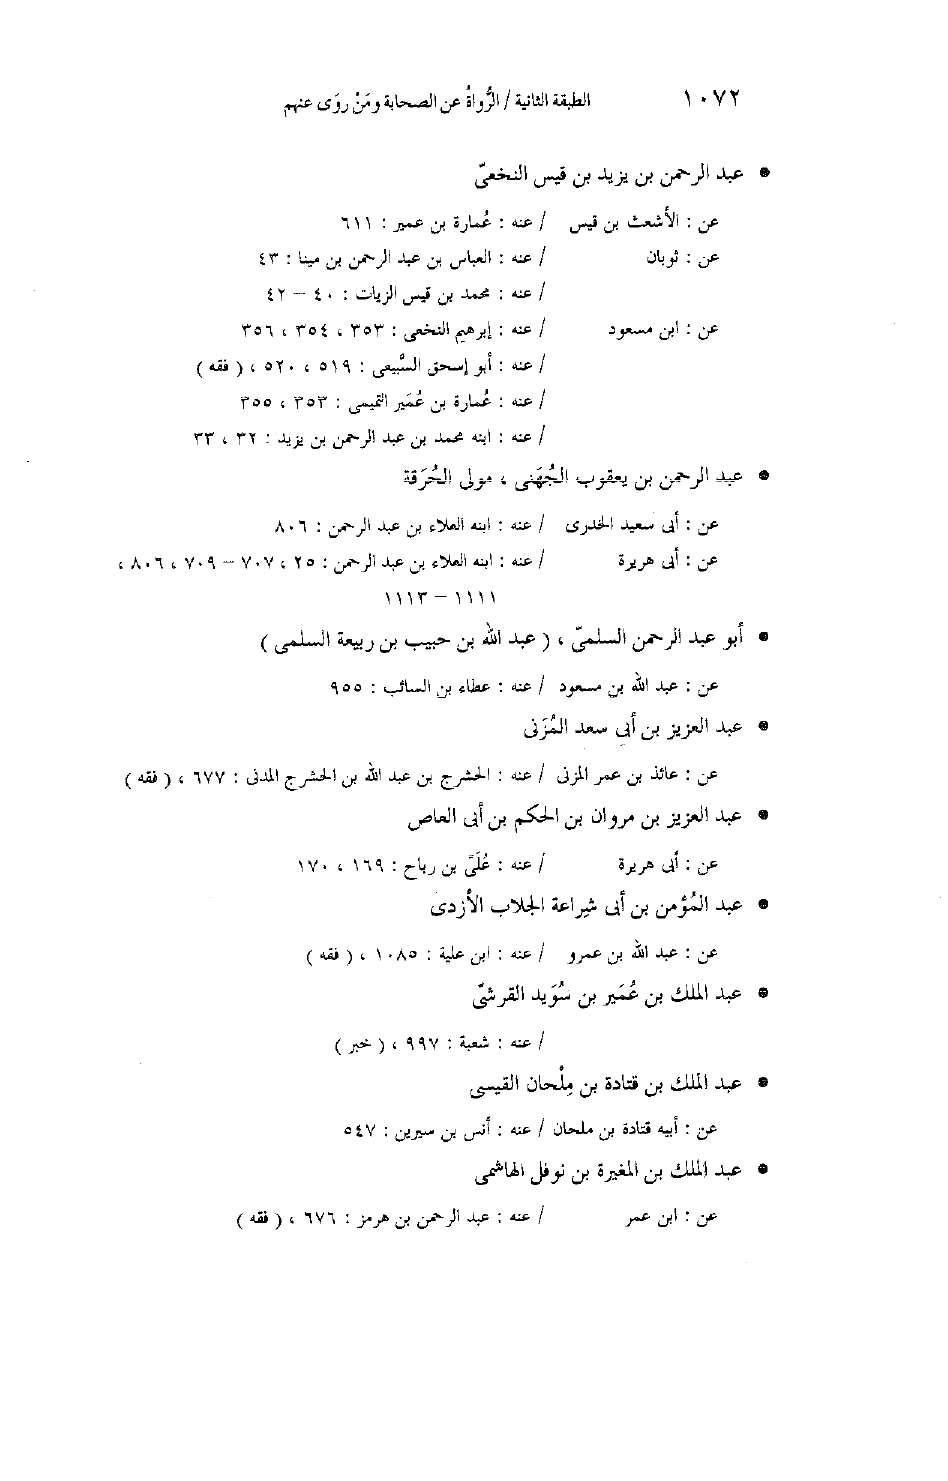 ١٠٧٢ الطبقة الثانية / الرُّواةُ عن الصحابة ومَنْ روَى عنهم
• عبد الرحمن بن يزيد بن قيس النخعيّ
عن : الأشعث بن قيس / عنه : عُمارة بن عمير : ٦١١
عن : ثوبان / عنه : العباس بن عبد الرحمن بن مينا : ٤٣
/ عنه : محمد بن قيس الزيات : ٤٠ – ٤٢
عن : ابن مسعود / عنه : إبرهيم النخعى : ٣٥٣ ، ٣٥٤ ، ٣٥٦
/ عنه : أبو إسحق السَّبيعى : ٥١٩ ، ٥٢٠ ، ( فقه )
/ عنه : عُمارة بن عُمَير التميمى : ٣٥٣ ، ٣٥٥
/ عنه : ابنه محمد بن عبد الرحمن بن يزيد : ٣٢ ، ٣٣
• عبد الرحمن بن يعقوب الجُهَنى ، مولى الحُرَقة
عن : أبى سعيد الخدرى / عنه : ابنه العلاء بن عبد الرحمن : ٨٠٦
عن : أبى هريرة / عنه : ابنه العلاء بن عبد الرحمن : ٢٥ ، ٧٠٧ – ٧٠٩ ، ٨٠٦ ،
١١١١ – ١١١٣
• أبو عبد الرحمن السلميّ ، ( عبد الله بن حبيب بن ربيعة السلمى )
عن : عبد الله بن مسعود / عنه : عطاء بن السائب : ٩٥٥
• عبد العزيز بن أبى سعد المُزَنى
عن : عائذ بن عمر المزنى / عنه : الحشرج بن عبد الله بن الحشرج المدنى : ٦٧٧ ، ( فقه )
• عبد العزيز بن مروان بن الحكم بن أبى العاص
عن : أبى هريرة / عنه : عُلَىّ بن رباح : ١٦٩ ، ١٧٠
• عبد المُؤمن بن أبى شراعة الجلاب الأزدى
عن : عبد الله بن عمرو / عنه : ابن علية : ١٠٨٥ ، ( فقه )
• عبد الملك بن عُمَير بن سُوَيد القرشىّ
/ عنه : شعبة : ٩٩٧ ، ( خبر )
• عبد الملك بن قتادة بن مِلْحان القيسى
عن : أبيه قتادة بن ملحان / عنه : أنس بن سيرين : ٥٤٧
• عبد الملك بن المغيرة بن نوفل الهاشمى
عن : ابن عمر / عنه : عبد الرحمن بن هرمز : ٦٧٦ ، ( فقه )